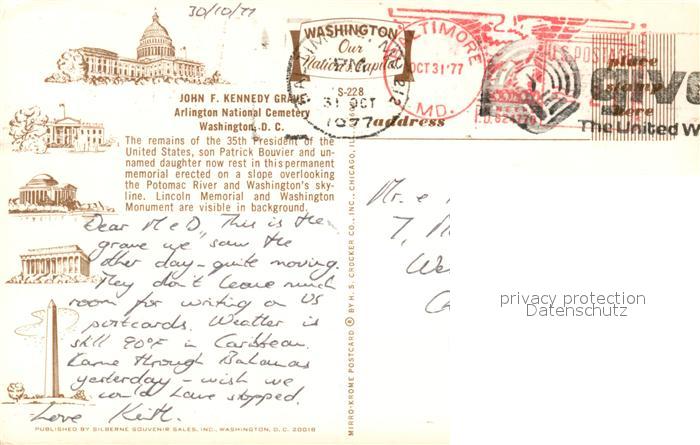 30/10/77
WASHINGTON
Our
Nation's Capital
PM
S-228
31 OCT
1977
212
BALTIMORE
OCT 31 '77
MD.
U.S. POSTAGE
place
stamp
here
give
The United W
address
JOHN F. KENNEDY GRAVE
Arlington National Cemetery
Washington, D. C.
The remains of the 35th President of the
United States, son Patrick Bouvier and un-
named daughter now rest in this permanent
memorial erected on a slope overlooking
the Potomac River and Washington's sky-
line. Lincoln Memorial and Washington
Monument are visible in background.
Dear M & D, This is the
grave we saw the
other day - quite moving.
They don't leave much
room for writing on US
postcards. Weather is
still 90°F in Caribbean.
Came through Bahamas
yesterday - wish we
could have stopped.
Love Keith.
PUBLISHED BY SILBERNE SOUVENIR SALES, INC., WASHINGTON, D. C. 20018
MIRRO-KROME POSTCARD ® BY H. S. CROCKER CO., INC., CHICAGO, IL
Mr. &
7,
We
privacy protection
Datenschutz